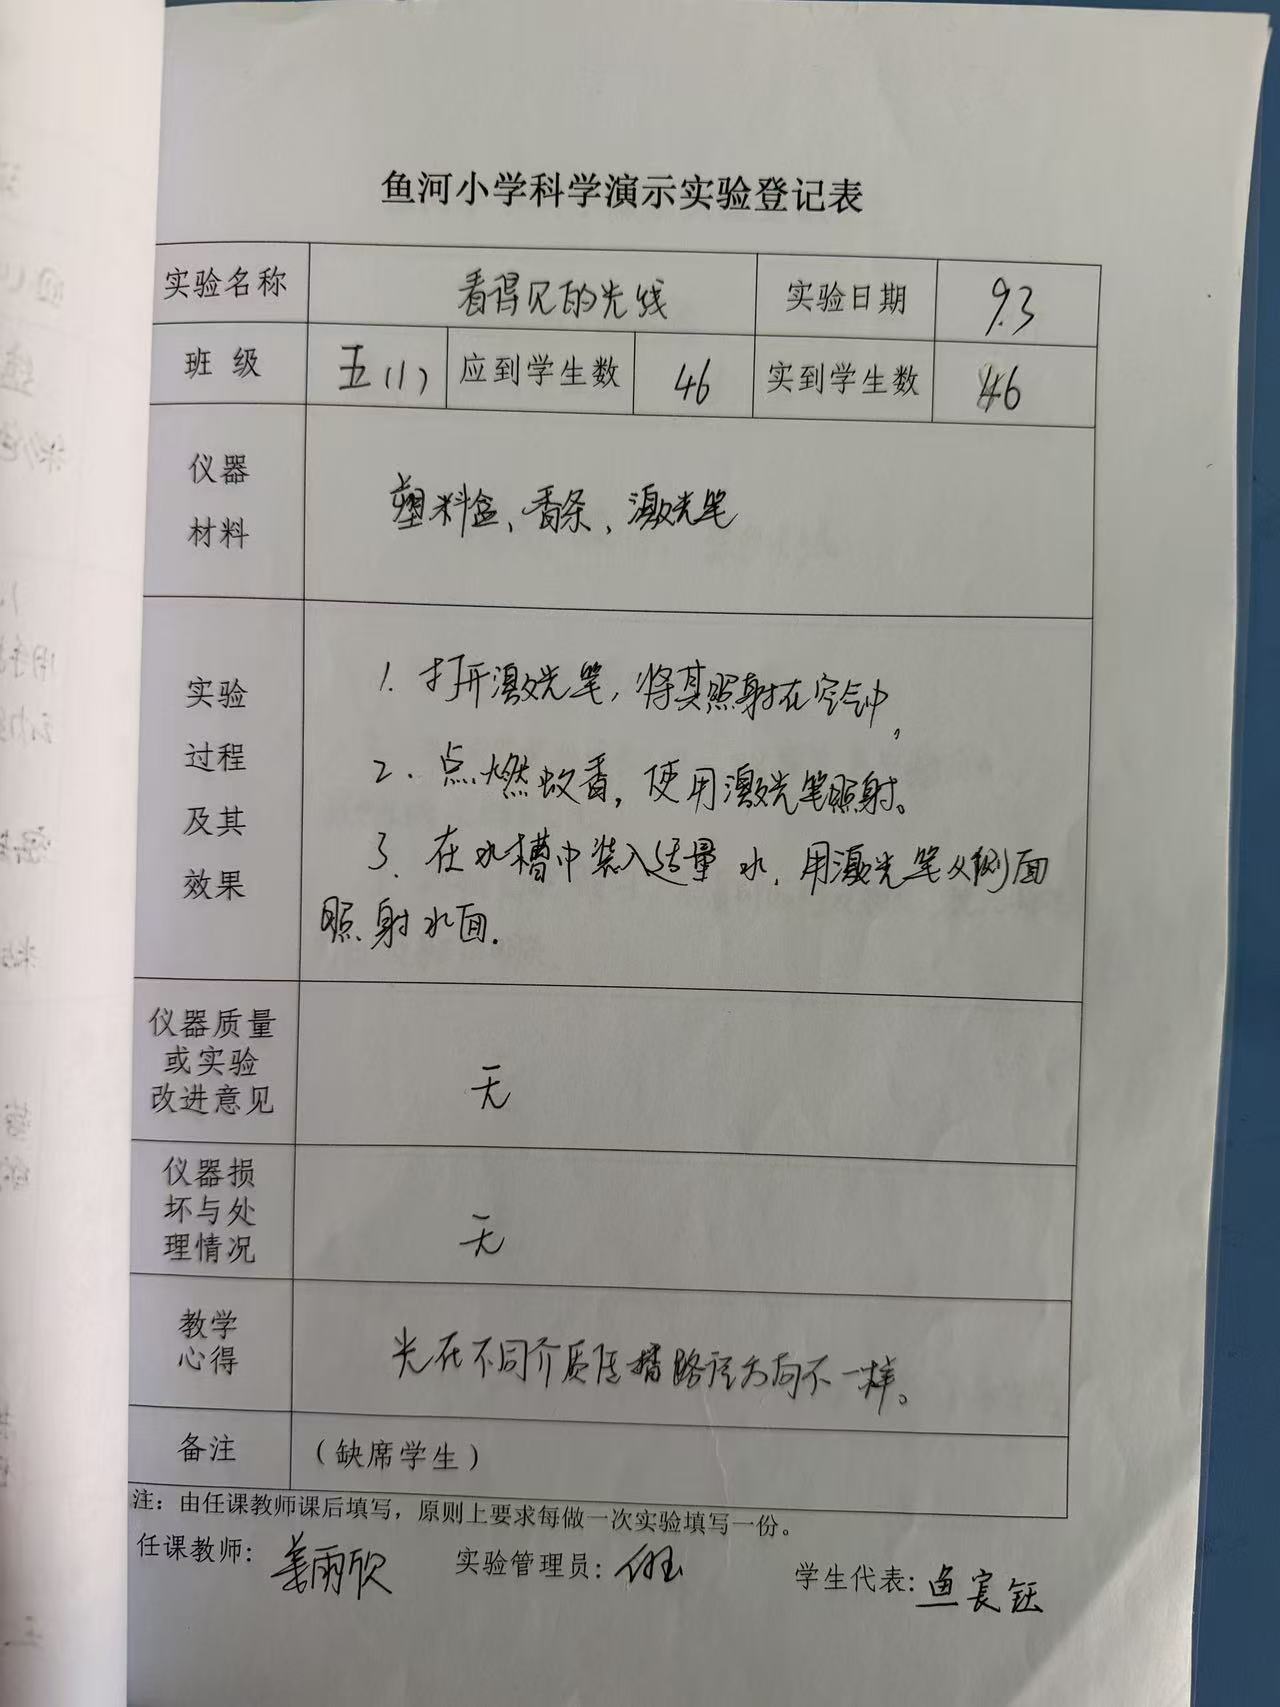 鱼河小学科学演示实验登记表
实验名称 看得见的光线 实验日期 9.3
班级 五(1) 应到学生数 46 实到学生数 46
仪器
材料
塑料盒、香条、激光笔
实验
过程
及其
效果
1. 打开激光笔,将其照射在空气中,
2. 点燃蚊香,使用激光笔照射。
3. 在水槽中装入适量水,用激光笔从侧面
照射水面.
仪器质量
或实验
改进意见
无
仪器损
坏与处
理情况
无
教学
心得
光在不同介质传播路径方向不一样。
备注 (缺席学生)
注:由任课教师课后填写,原则上要求每做一次实验填写一份。
任课教师: 姜雨欣 实验管理员: 学生代表: 鱼宸钰